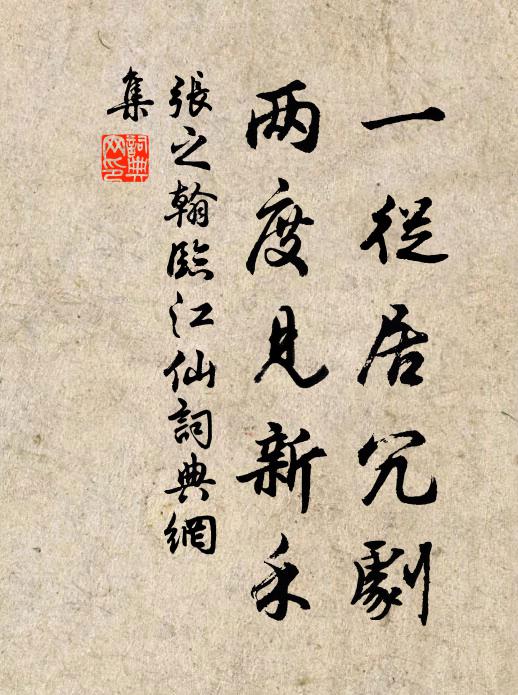 一從居冗劇
两度見新禾
張之翰臨江仙詞典網
集
詞典網印